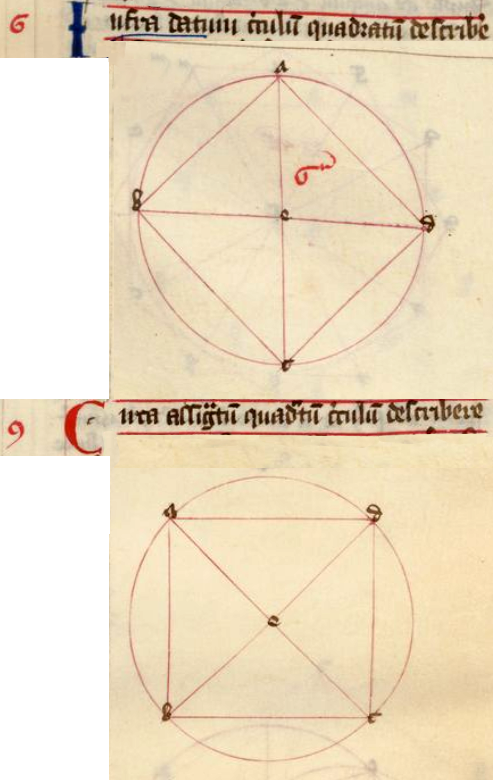 6 Infra datum c̓culū quadratū describe
a
b e d
c
9 Circa assig̃tū quad̃tū c̓culū describere
a d
e
b c